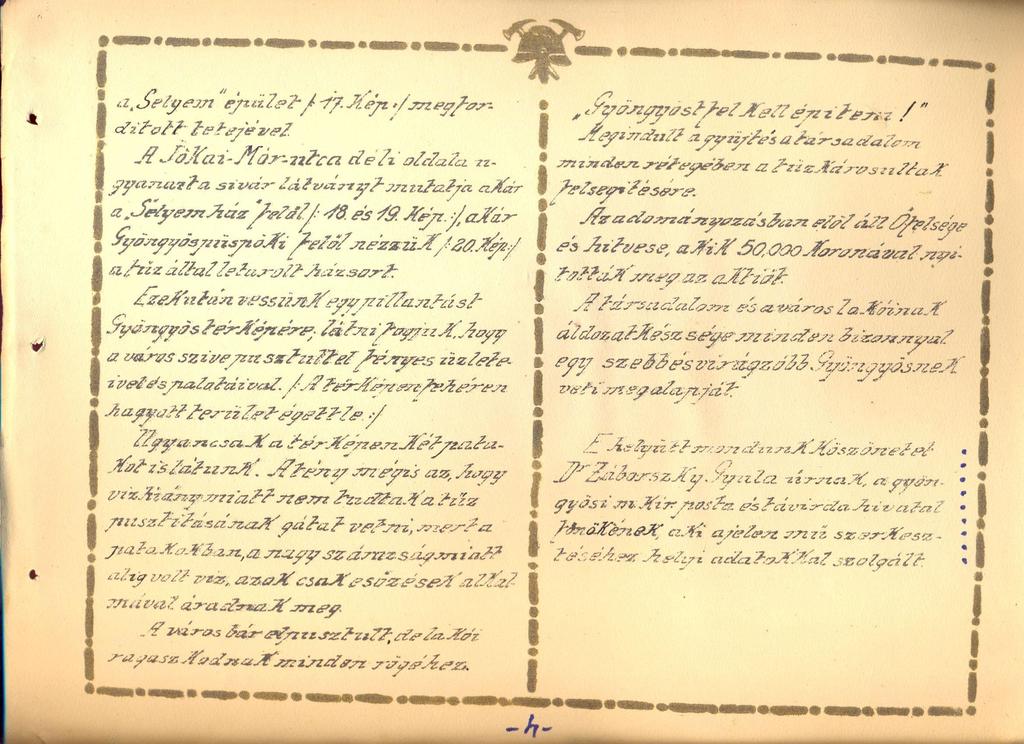 a „Selyem” épület /: 17. Kép :/ megfor-
dított tetejével.
A Jókai-Mór-utca déli oldala u-
gyanazt a sivár látványt mutatja akár
a „Selyemház” felől /: 18. és 19. Kép :/, akár
Gyöngyöspüspöki felől nézzük /: 20. Kép :/
a tűz által letarolt házsort.
Ezek után vessünk egy pillantást
Gyöngyös térképére, látni fogjuk, hogy
a város szive pusztult el fényes üzlete-
ivel és palotáival. /: A térképen fehéren
hagyott terület égett le :/
Ugyancsak a térképen két pata-
kot is látunk. A tény mégis az, hogy
vizhiány miatt nem tudtak a tűz
pusztításának gátat vetni, mert a
patakokban, a nagy szárazság miatt
alig volt viz, azok csak esőzések alkal-
mával áradnak meg.
A város bár elpusztult, de lakói
ragaszkodnak minden rögéhez.
„Gyöngyöst fel kell építeni!”
Megindult a gyűjtés a társadalom
minden rétegében a tűzkárosultak
felsegitésére.
Az adományozásban elől áll Őfelsége
és hitvese, akik 50,000 koronával nyi-
tották meg az akciót.
A társadalom és a város lakóinak
áldozatkészsége minden bizonnyal
egy szebb és virágzóbb Gyöngyösnek
veti meg alapját.
E helyütt mondunk köszönetet
Dr Záborszky Gyula úrnak, a gyön-
gyösi m. kir. posta és távirda hivatal
főnökének, aki a jelen mű szerkesz-
téséhez helyi adatokkal szolgált.
-4-